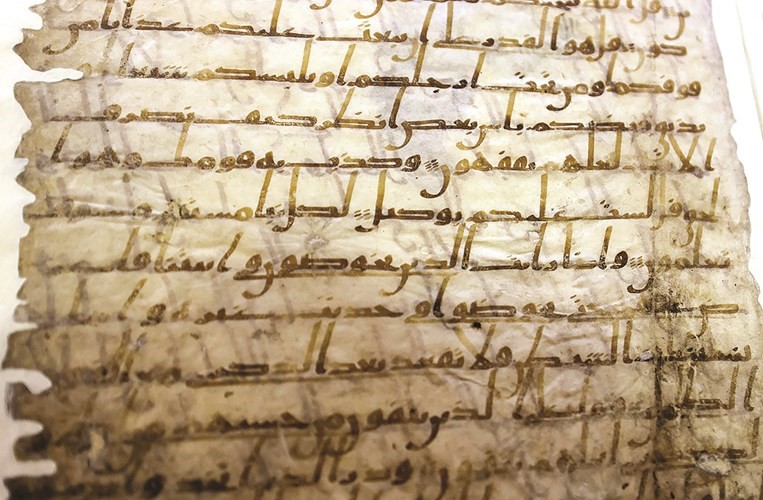 كون قل هو القدر على ان يبعث عليكم عذابا من
فوقكم او من تحت ارجلكم او يلبسكم شيعا و
يذيق بعضكم باس بعض انظر كيف نصرف
الايت لعلهم يفقهون وكذب به قومك وهو ا
لحق قل لست عليكم بوكيل لكل نبا مستقر وسوف
تعلمون واذا رايت الذين يخوضون في ايتنا فاعر
ض عنهم حتى يخوضوا في حديث غيره واما
ينسينك الشيطن فلا تقعد بعد الذكرى مع القوم
الظلمين وما على الذين يتقون من حسابهم من
لعلهم يتقون وذر الذين اتخذوا